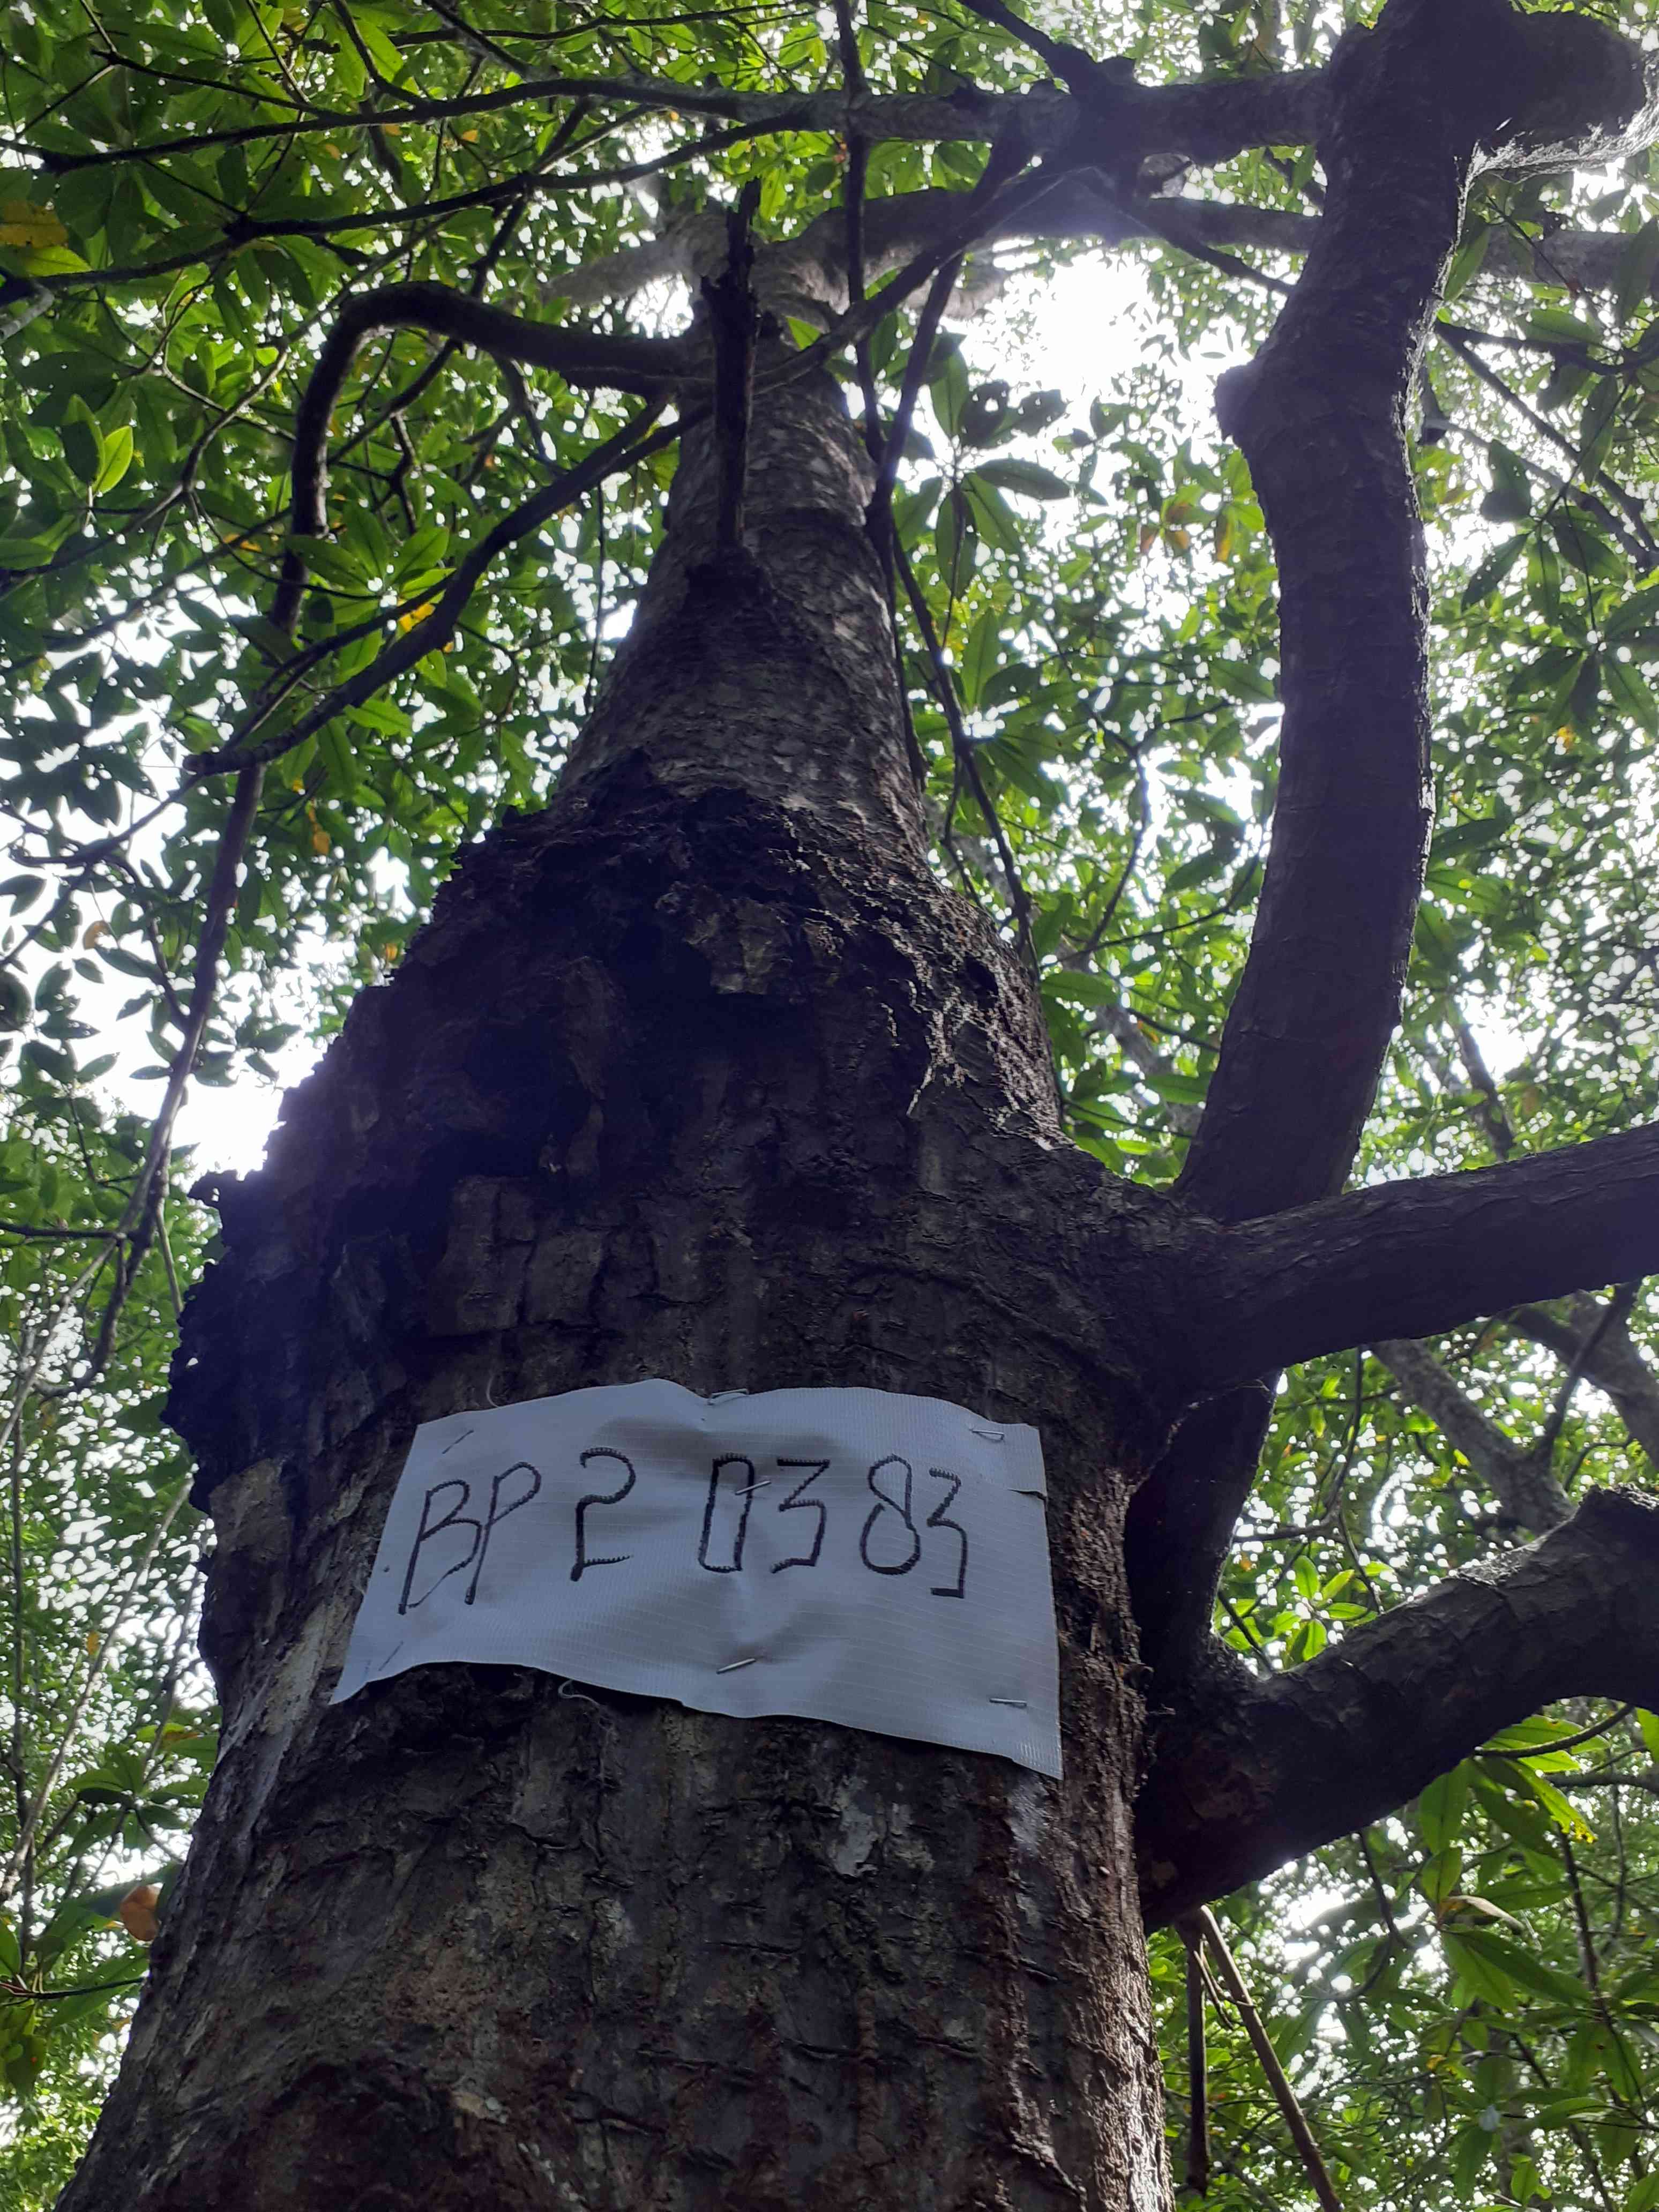 BP2 0383